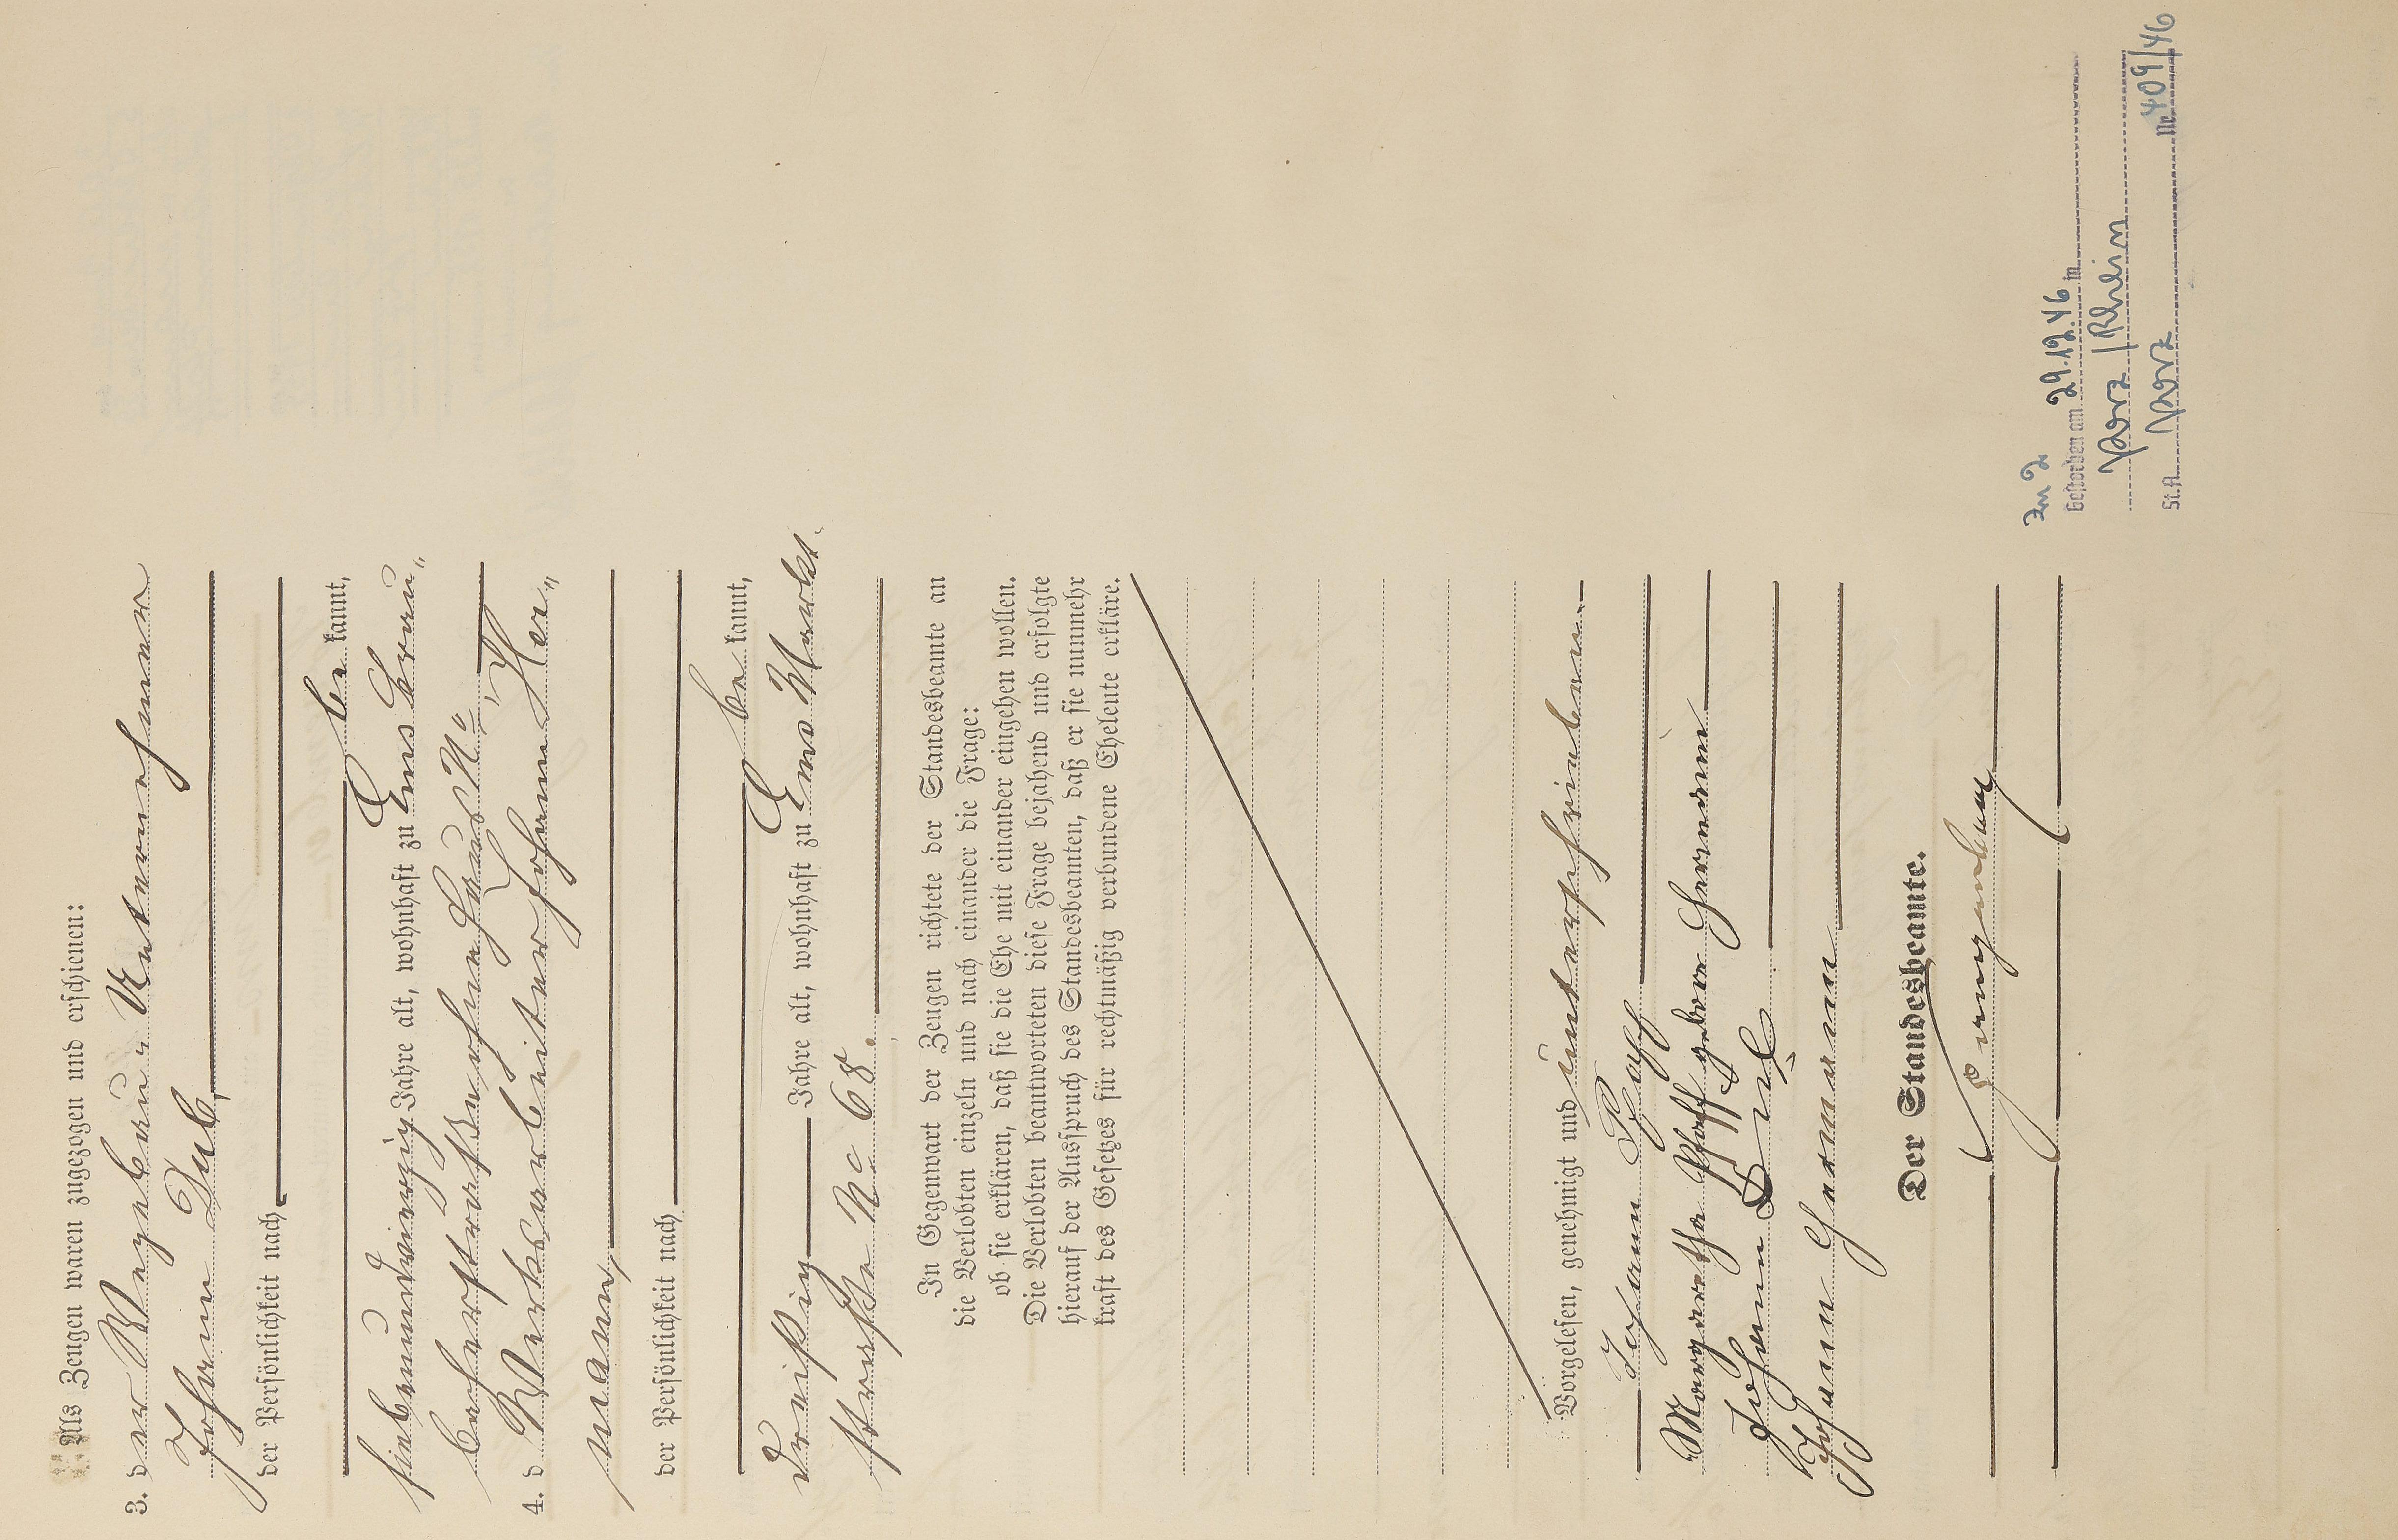 Als Zeugen waren zugezogen und erschienen:
3. der Wegebau-Unternehmer
Johann Dul,
der Persönlichkeit nach
be kannt,
siebenundvierzig Jahre alt, wohnhaft zu Ems Brau-
bacherstraße ohne Haus No
4. d Werksarbeiter Johann Her-
mann,
der Persönlichkeit nach
be kannt,
dreißig Jahre alt, wohnhaft zu Ems Markt-
straße No 68.
In Gegenwart der Zeugen richtete der Standesbeamte an
die Verlobten einzeln und nach einander die Frage:
ob sie erklären, daß sie die Ehe mit einander eingehen wollen.
Die Verlobten beantworteten diese Frage bejahend und erfolgte
hierauf der Ausspruch des Standesbeamten, daß er sie nunmehr
kraft des Gesetzes für rechtmäßig verbundene Eheleute erkläre.
Vorgelesen, genehmigt und unterschrieben
Johann Pfaff
Margaretha Pfaff geborne Hermann
Johann Dul
Johann Hermann
Der Standesbeamte.
zu 2
Gestorben am 29.12.46 in
Porz/Rhein
St.A. Porz Nr. 409/46